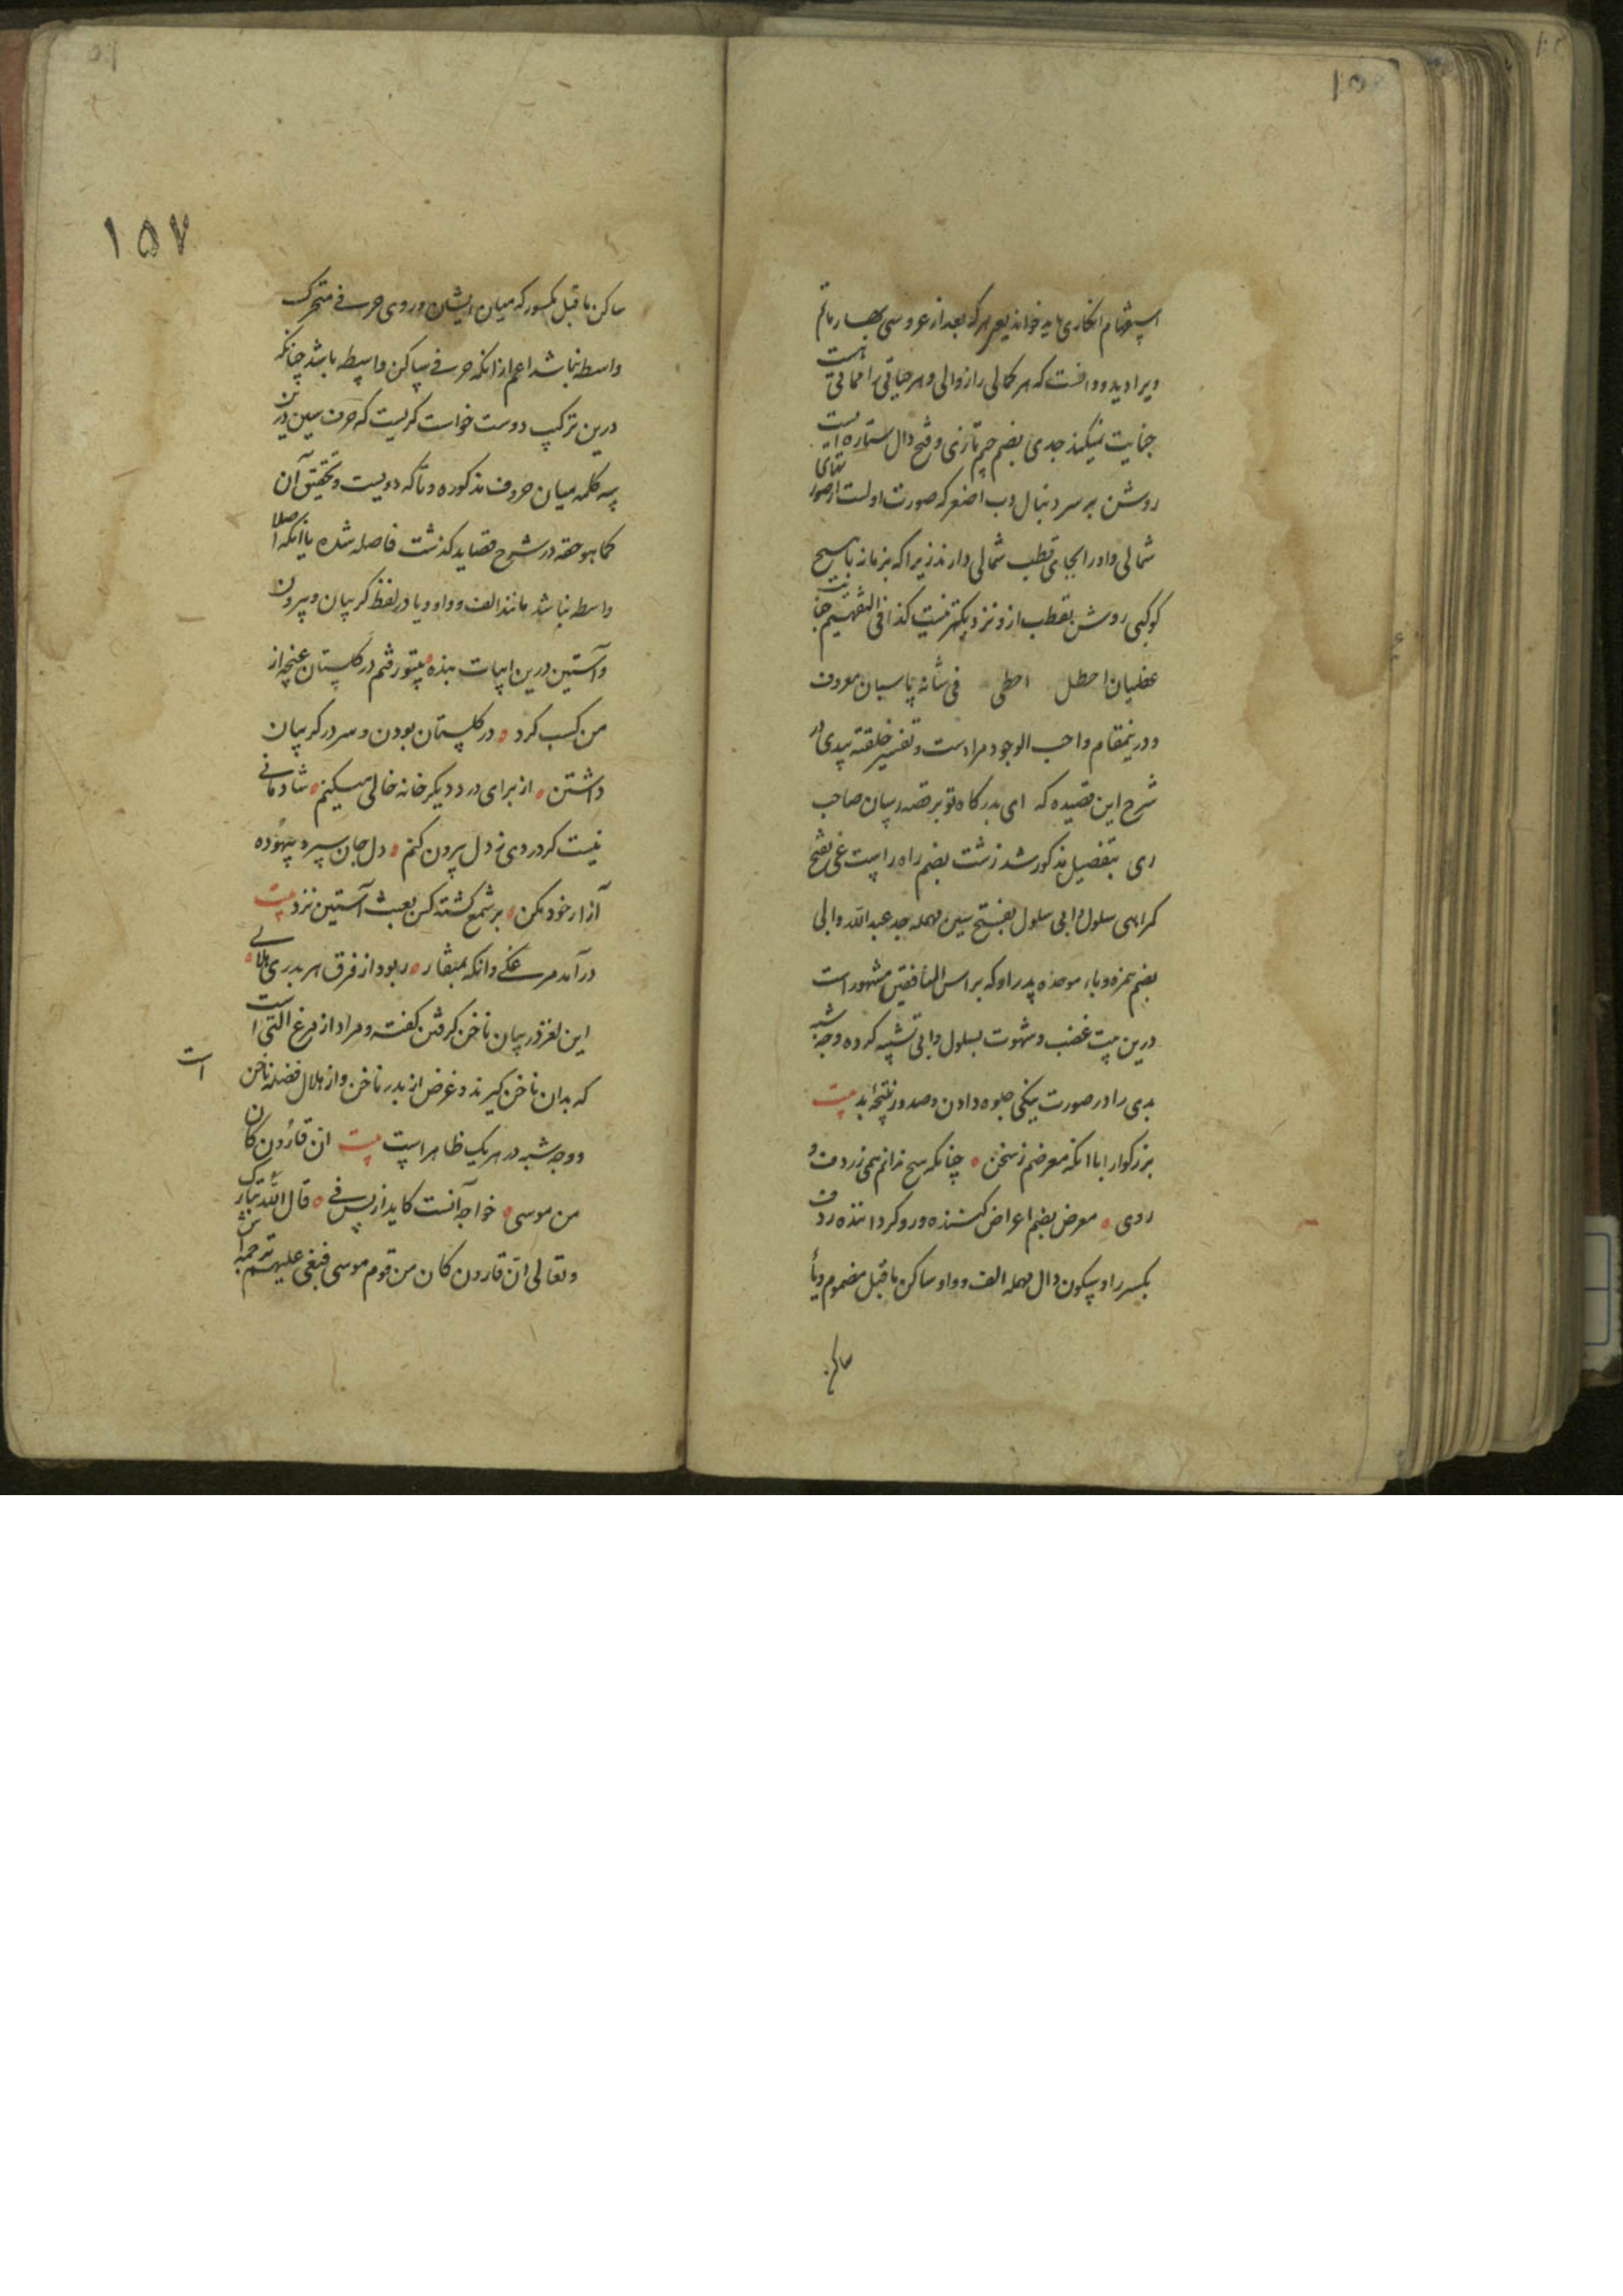 استفهام انکاری باید خواند یعنی هرکه بعد از عروسی بهار ماتم
ویرا دید و دانست که هر کمالی را زوالی و هر حیاتی را مماتی است
جنایت نمیکند جدی بضم جیم تازی و فتح دال ستاره ایست
روشن بر سر دنبال دب اصغر که صورت اولست از صورتهای
شمالی و او را بجای قطب شمالی دارند زیرا که بزمانه ما هیچ
کوکبی روشن بقطب ازو نزدیکتر نیست کذا فی التفهیم
عفلیان احطل احطی فی شانه پاسبان معروف
و درینمقام واجب الوجود مراد است و تفسیر خلقته بیدی در
شرح این قصیده که ای بدرگاه تو بر قصه رسان صاحب
ری بتفصیل مذکور شد زشت بضم راه راست غی بفتح
کمراهی سلول و ابی سلول بفتح سین مهمله جد عبدالله و ابی
بضم همزه و باء موحده پدر او که براس المنافقین مشهور است
درین بیت غضب و شهوت بسلول و ابی تشبیه کرده وجه شبه
بدی را در صورت نیکی جلوه دادن و صدور نتیجهٔ بد بیت
بزرکوارا با انکه معرضم ز سخن ۰ چنانکه هیچ ندانم همی ز ردف و
روی ۰ معرض بضم اعراض کننده و رو کرداننده ردف
بکسر را و سکون دال مهمله الف و واو ساکن ما قبل مضموم و یاء
ساکن
۱۵۷
ساکن ما قبل مکسور که میان ایشان و روی حرفی متحرک
واسطه نباشد اعم از انکه حرفی ساکن واسطه باشد چنانکه
درین ترکیب دوست خواست کریست که حرف سین درین
سه کلمه میان حروف مذکوره و تا که رویست و تحقیق آن
کما هو حقه در شرح قصاید کذشت فاصله شده یا انکه اصلا
واسطه نباشد مانند الف و واو و یا در لفظ کریبان و بیرون
و آستین درین ابیات بنده ۰ بیتو رفتم در کلستان غنچه از
من کسب کرد ۰ در کلستان بودن و سر در کریبان
داشتن ۰ از برای درد دیکر خانه خالی میکنم ۰ شادمانی
نیست کر دردی ز دل بیرون کنم ۰ دل جان سپرد بیهوده
آزار خود مکن ۰ بر شمع کشته کس بعبث آستین نزد بیت
درآمد مرغکی وانکه بمنقار ۰ ربود از فرق هر بدری هلالی ۰
این لغز در بیان ناخن کرفتن کفته و مراد از مرغ التی است
که بدان ناخن کیرند و غرض از بدر ناخن و از هلال فضله ناخن
است
و وجه شبه در هریک ظاهر است بیت ان قارون کان
من موسی ۰ خواجه آنست کاید از پس فی ۰ قال الله تبارک
و تعالی ان قارون کان من قوم موسی فبغی علیهم ترجمه اش